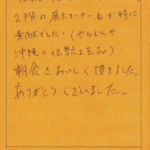 2階の展示コーナーも特に
素敵でした!(やちむんや
沖縄の伝統工芸品)
朝食もおいしく頂きました。
ありがとうございました。